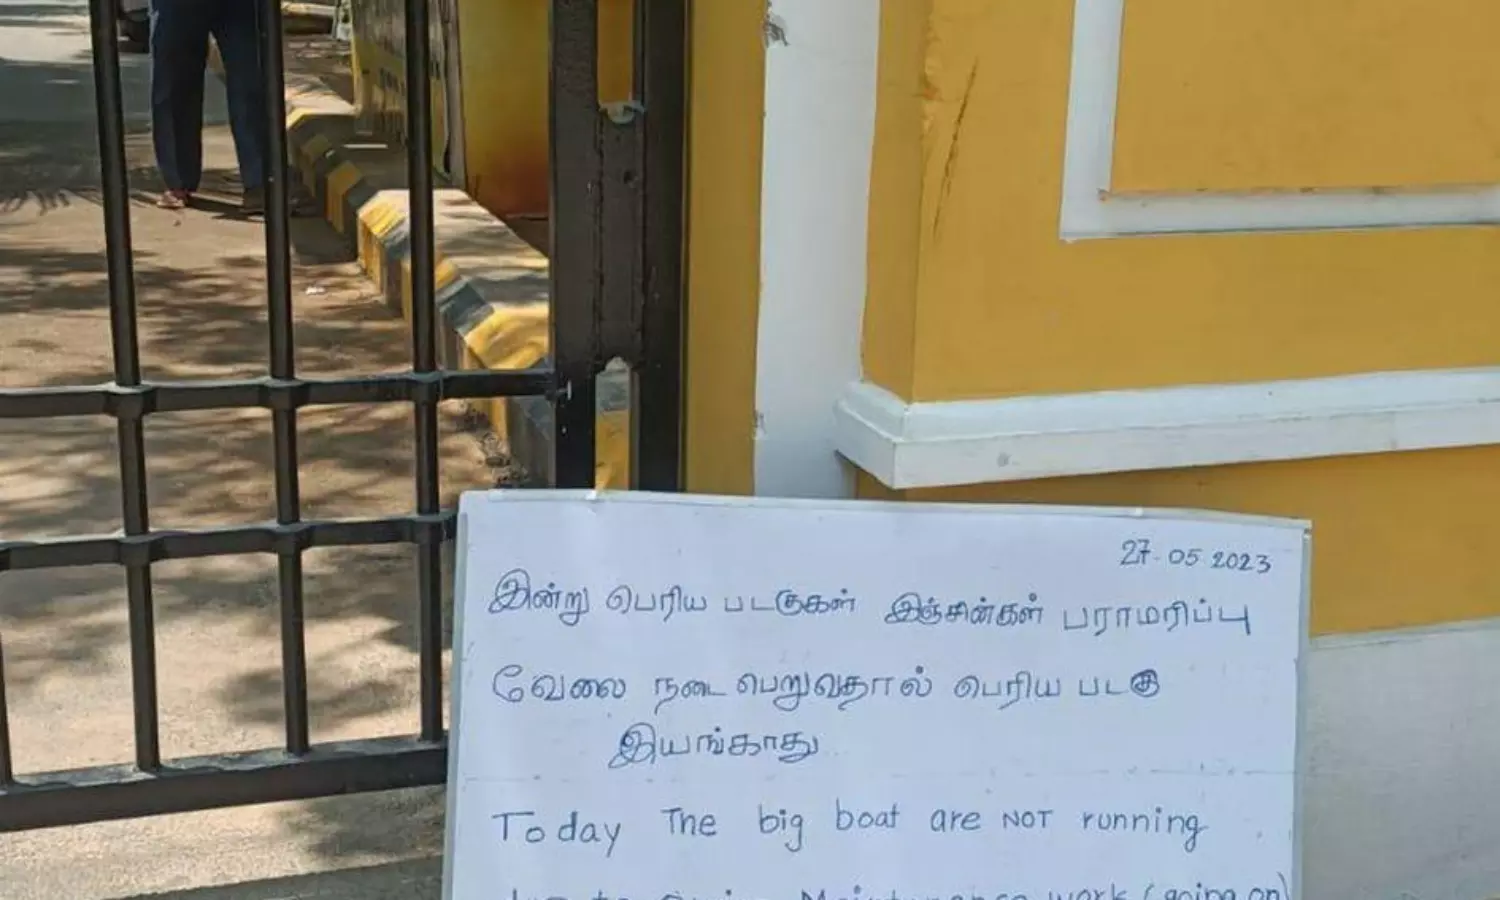 27-05-2023
இன்று பெரிய படகுகள் இஞ்சின்கள் பராமரிப்பு
வேலை நடைபெறுவதால் பெரிய படகு
இயங்காது
Today The big boat are NOT running
due to Engine Maintenance work (going on)